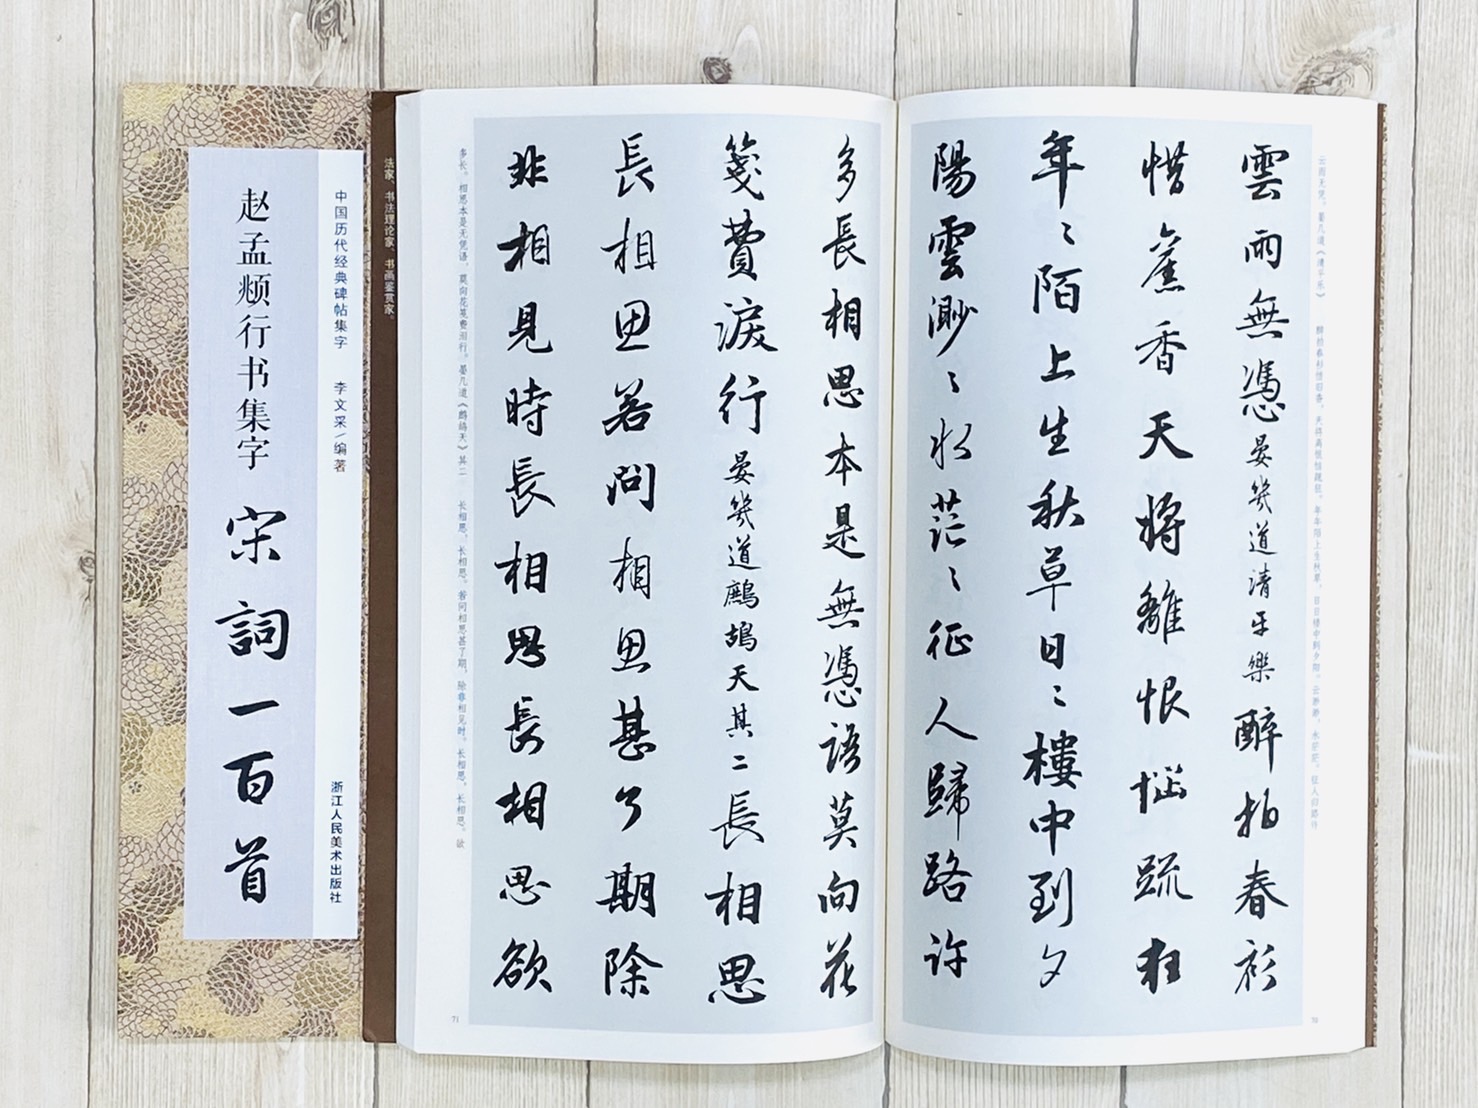 赵孟𫖯行书集字 宋詞一百首
中国历代经典碑帖集字 李文采/编著 浙江人民美术出版社
法家、书法理论家、书画鉴赏家。
云雨无凭。晏几道《清平乐》 醉拍春衫惜旧香，天将离恨恼疏狂。年年陌上生秋草，日日楼中到夕阳。云渺渺，水茫茫。征人归路许
雲雨無憑晏幾道清平樂醉拍春衫
惜舊香天將離恨惱疏狂
年〻陌上生秋草日〻樓中到夕
陽雲渺〻水茫〻征人歸路許
70
多長相思本是無憑語莫向花
箋費淚行晏幾道鷓鴣天其二長相思
長相思若問相思甚了期除
非相見時長相思長相思欲
多长。相思本是无凭语，莫向花笺费泪行。晏几道《鹧鸪天》其二 长相思，长相思。若问相思甚了期，除非相见时。长相思，长相思。欲
71